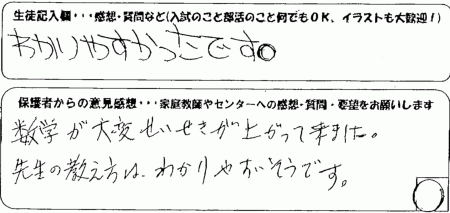 生徒記入欄・・・感想・質問など(入試のこと部活のこと何でもOK、イラストも大歓迎!)
わかりやすかったです。
保護者からの意見感想・・・家庭教師やセンターへの感想・質問・要望をお願いします
数学が大変せいせきが上がって来ました。
先生の教え方は、わかりやすいそうです。